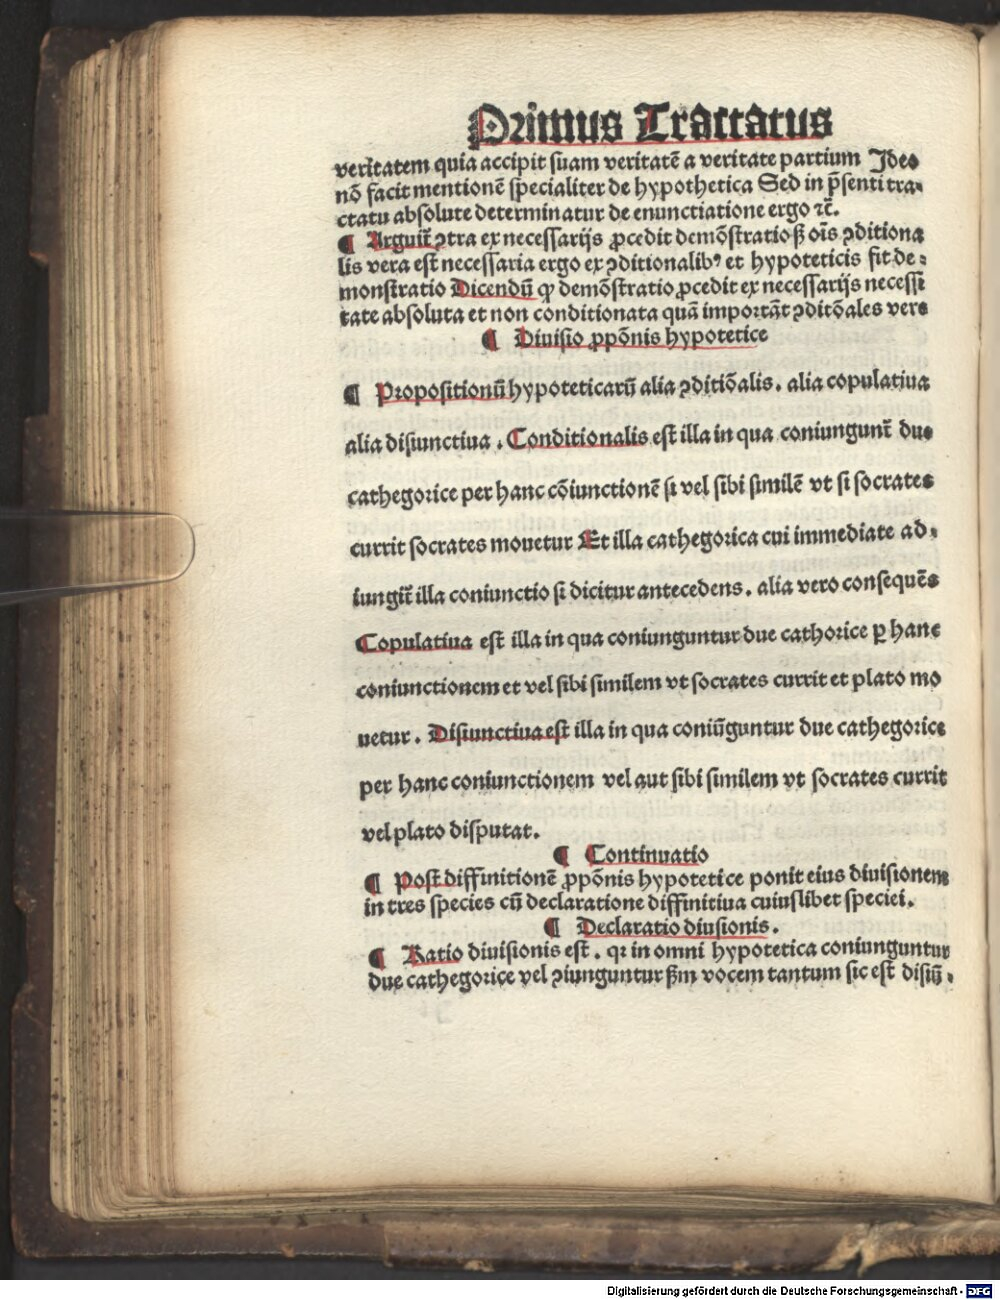 Primus Tractatus
veritatem quia accipit suam veritatē a veritate partium Ideo
nō facit mentionē specialiter de hypothetica Sed in p̄senti tra⸗
ctatu absolute determinatur de enunctiatione ergo ⁊c̄.
¶ Arguit̄ ꝯtra ex necessarijs ꝓcedit demōstratio sꝫ oīs ꝯditiona
lis vera est necessaria ergo ex ꝯditionalibꝰ et hypoteticis fit de⸗
monstratio Dicendū ꝙ demōstratio ꝓcedit ex necessarijs necessi
tate absoluta et non conditionata quā importāt ꝯditōales vere
¶ Diuisio ꝓpōnis hypotetice
¶ Propositionū hypoteticarū alia ꝯditiōalis. alia copulatiua
alia disiunctiua. Conditionalis est illa in qua coniungunt̄ due
cathegorice per hanc cōiunctionē si vel sibi similē vt si socrates
currit socrates mouetur Et illa cathegorica cui immediate ad⸗
iungit̄ illa coniunctio si dicitur antecedens. alia vero consequēs
Copulatiua est illa in qua coniunguntur due cathorice ꝑ hanc
coniunctionem et vel sibi similem vt socrates currit et plato mo
uetur. Disiunctiua est illa in qua coniūguntur due cathegorice
per hanc coniunctionem vel aut sibi similem vt socrates currit
vel plato disputat.
¶ Continuatio
¶ Post diffinitionē ꝓpōnis hypotetice ponit eius diuisionem
in tres species cū declaratione diffinitiua cuiuslibet speciei.
¶ Declaratio diusionis.
¶ Ratio diuisionis est. qꝛ in omni hypotetica coniunguntur
due cathegorice vel ꝯiunguntur sꝫm vocem tantum sic est disiū⸗
Digitalisierung gefördert durch die Deutsche Forschungsgemeinschaft - DFG